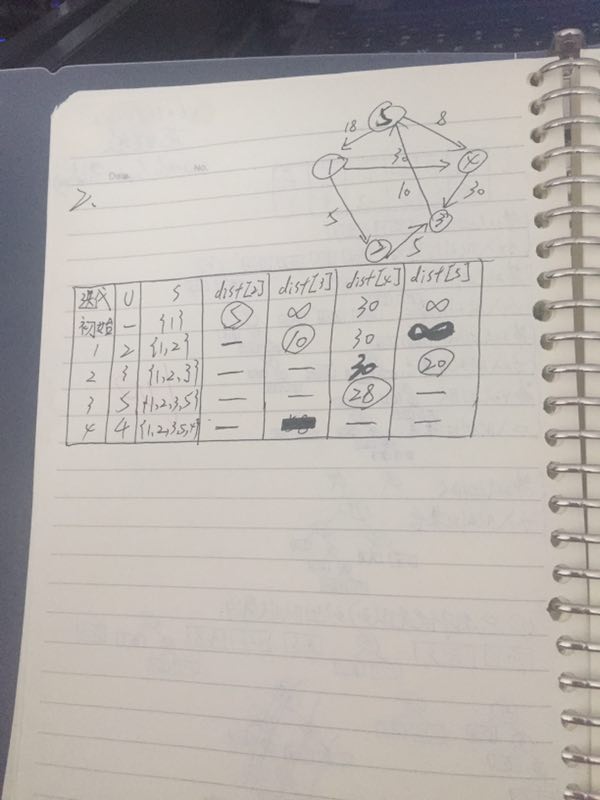 Date. No.
2.
5
18 8
1 30 4
10 30
5 3
2 5
迭代 U S dist[2] dist[3] dist[4] dist[5]
初始 — {1} 5 ∞ 30 ∞
1 2 {1,2} — 10 30 ∞
2 3 {1,2,3} — — 30 20
3 5 {1,2,3,5} — — 28 —
4 4 {1,2,3,5,4} — — —